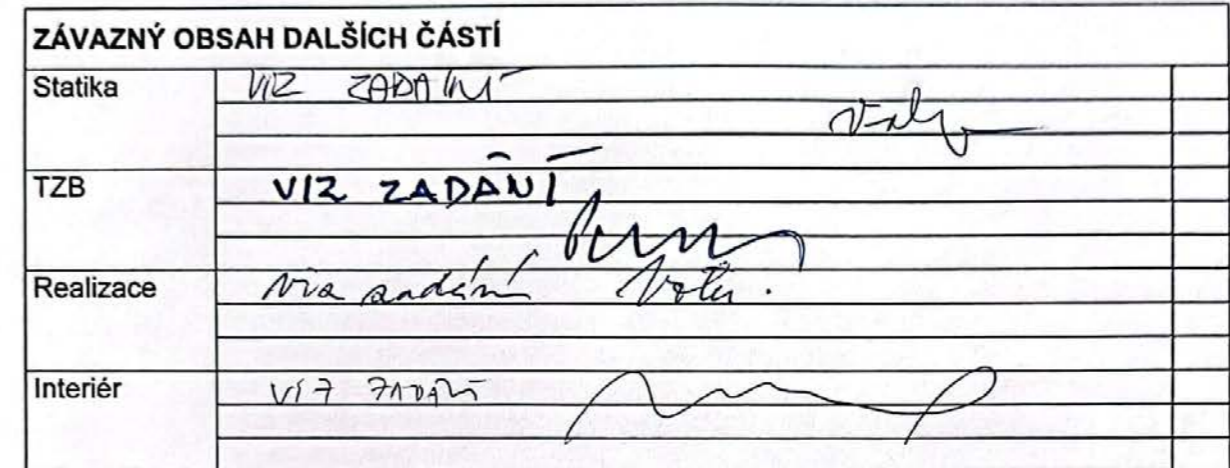 ZÁVAZNÝ OBSAH DALŠÍCH ČÁSTÍ
Statika VIZ ZADÁNÍ
TZB VIZ ZADÁNÍ
Realizace viz zadání
Interiér VIZ ZADÁNÍ